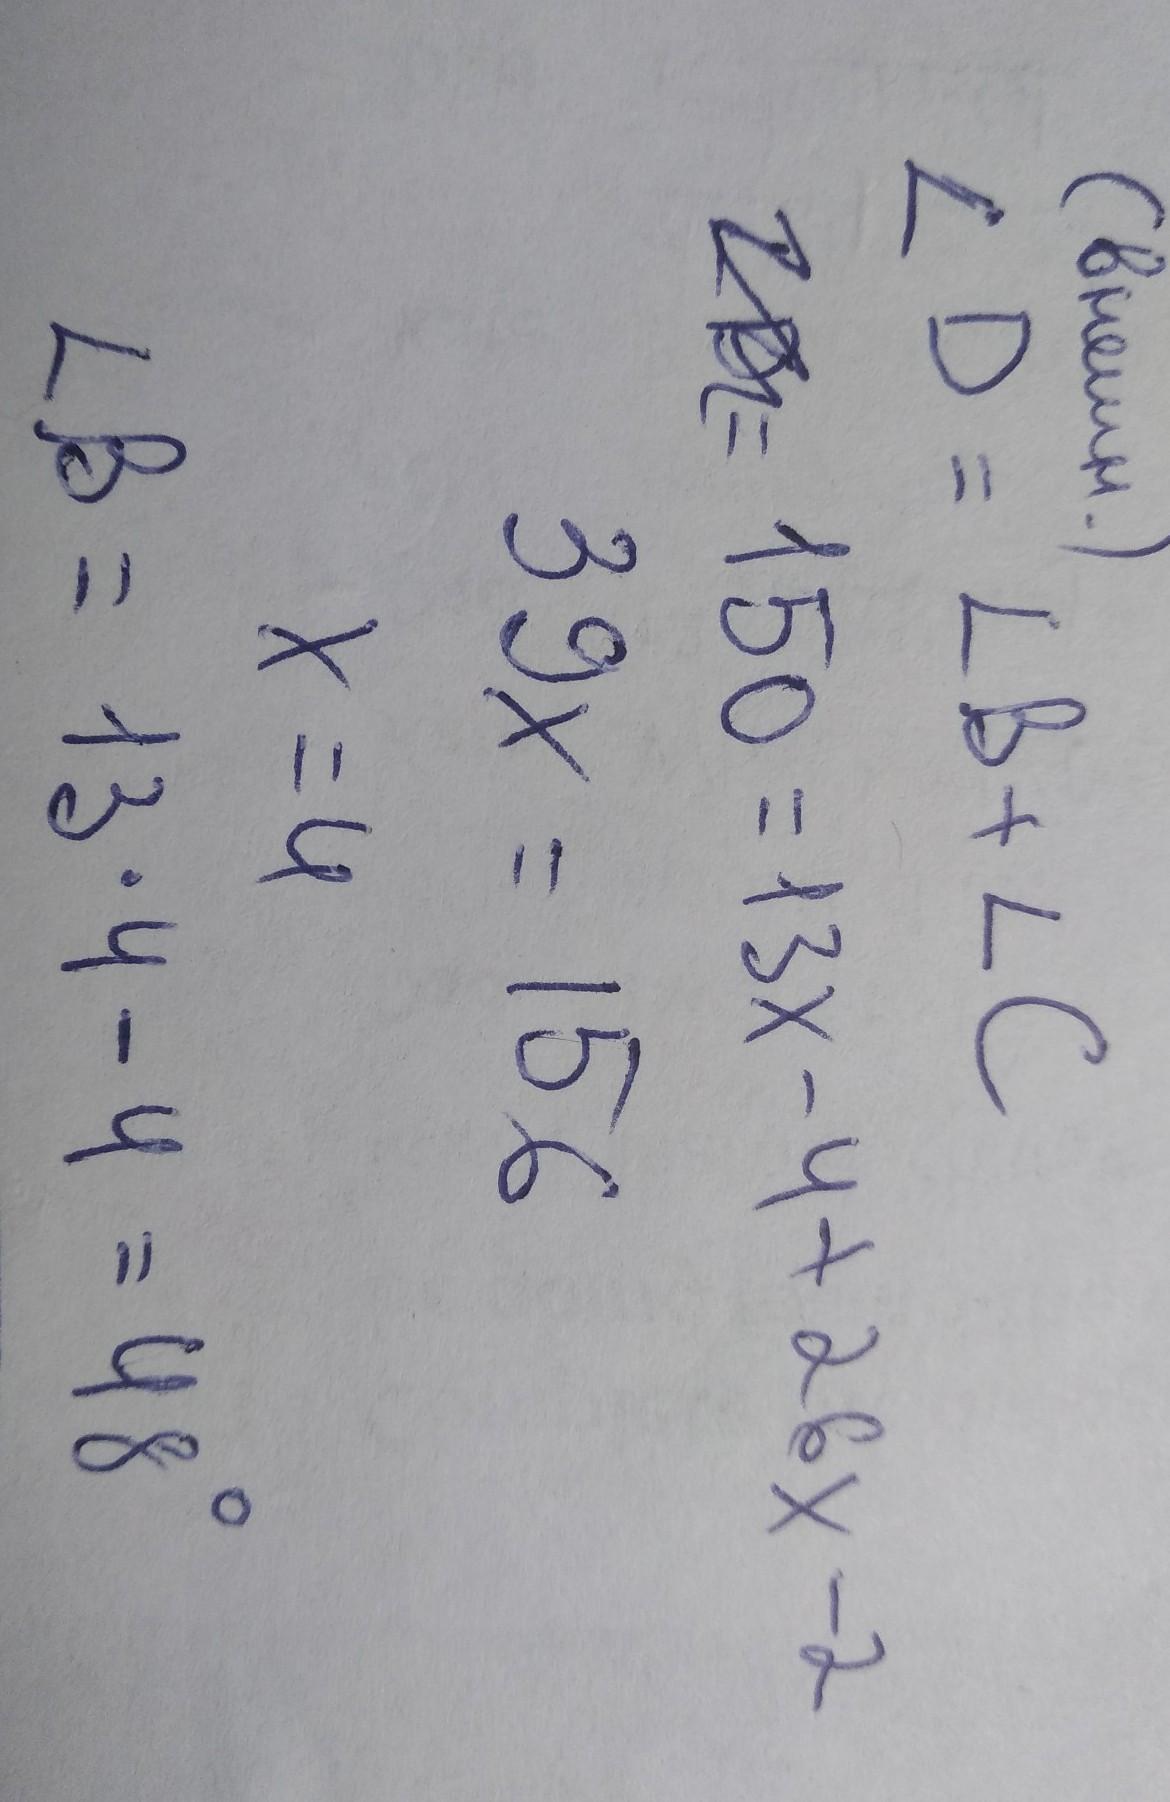 (внешн.)
∠D = ∠B + ∠C
= 150 = 13x - 4 + 26x - 2
39x = 156
x = 4
∠B = 13·4 - 4 = 48°